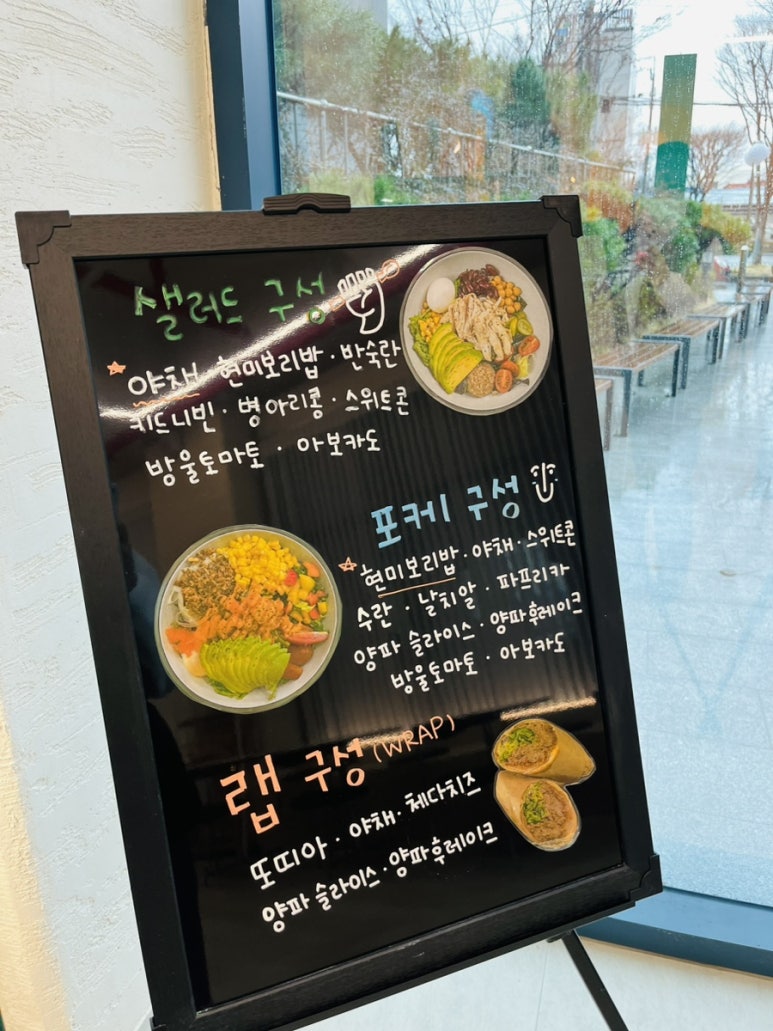 샐러드 구성
야채 현미보리밥 · 반숙란
키드니빈 · 병아리콩 · 스위트콘
방울토마토 · 아보카도
포케 구성
현미보리밥 · 야채 · 스위트콘
수란 · 날치알 · 파프리카
양파 슬라이스 · 양파후레이크
방울토마토 · 아보카도
랩 구성 (WRAP)
또띠아 · 야채 · 체다치즈
양파 슬라이스 · 양파후레이크